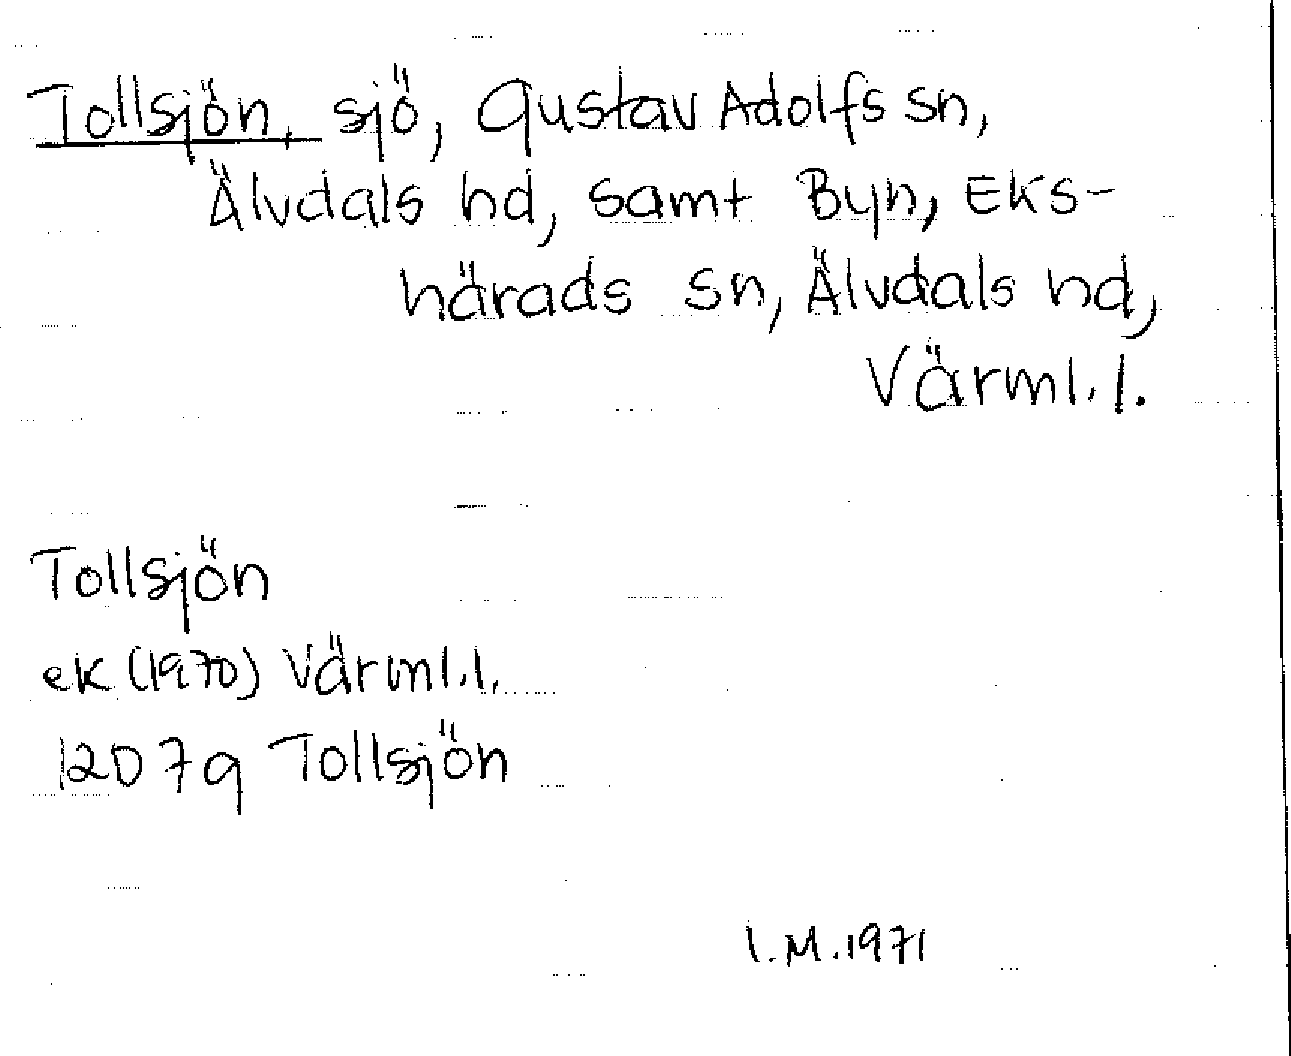 Tollsjön, sjö, Gustav Adolfs sn,
Älvdals hd, samt Byn, Eks-
härads sn, Älvdals hd,
Värml. l.
Tollsjön
ek (1970) Värml. l.
12D 7g Tollsjön
I.M. 1971